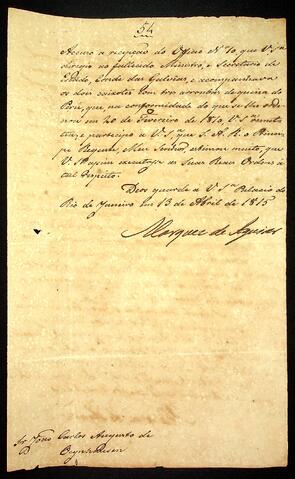 54
Accuso a recepção do Officio Nº 10, que V. S.ª
dirigio ao fallecido Ministro, e Secretario de
Estado, Conde das Galvêas, e acompanhava
os dois caixotes com tres arrobas de quina do
Perú, que na conformidade do que se lhe orde
nou em 20 de Fevereiro de 1810, V. S.ª remet
teu; e participo a V. S.ª que S. A. R. o Princi
pe Regente, Meu Senhor, estimou muito, que
V. S.ª assim executasse as Suas Reaes Ordens a
tal respeito.
Deos guarde a V. S.ª Palacio do
Rio de Janeiro em 13 de Abril de 1815
Marquez de Aguiar
Sr. João Carlos Augusto de
Oeynhausen